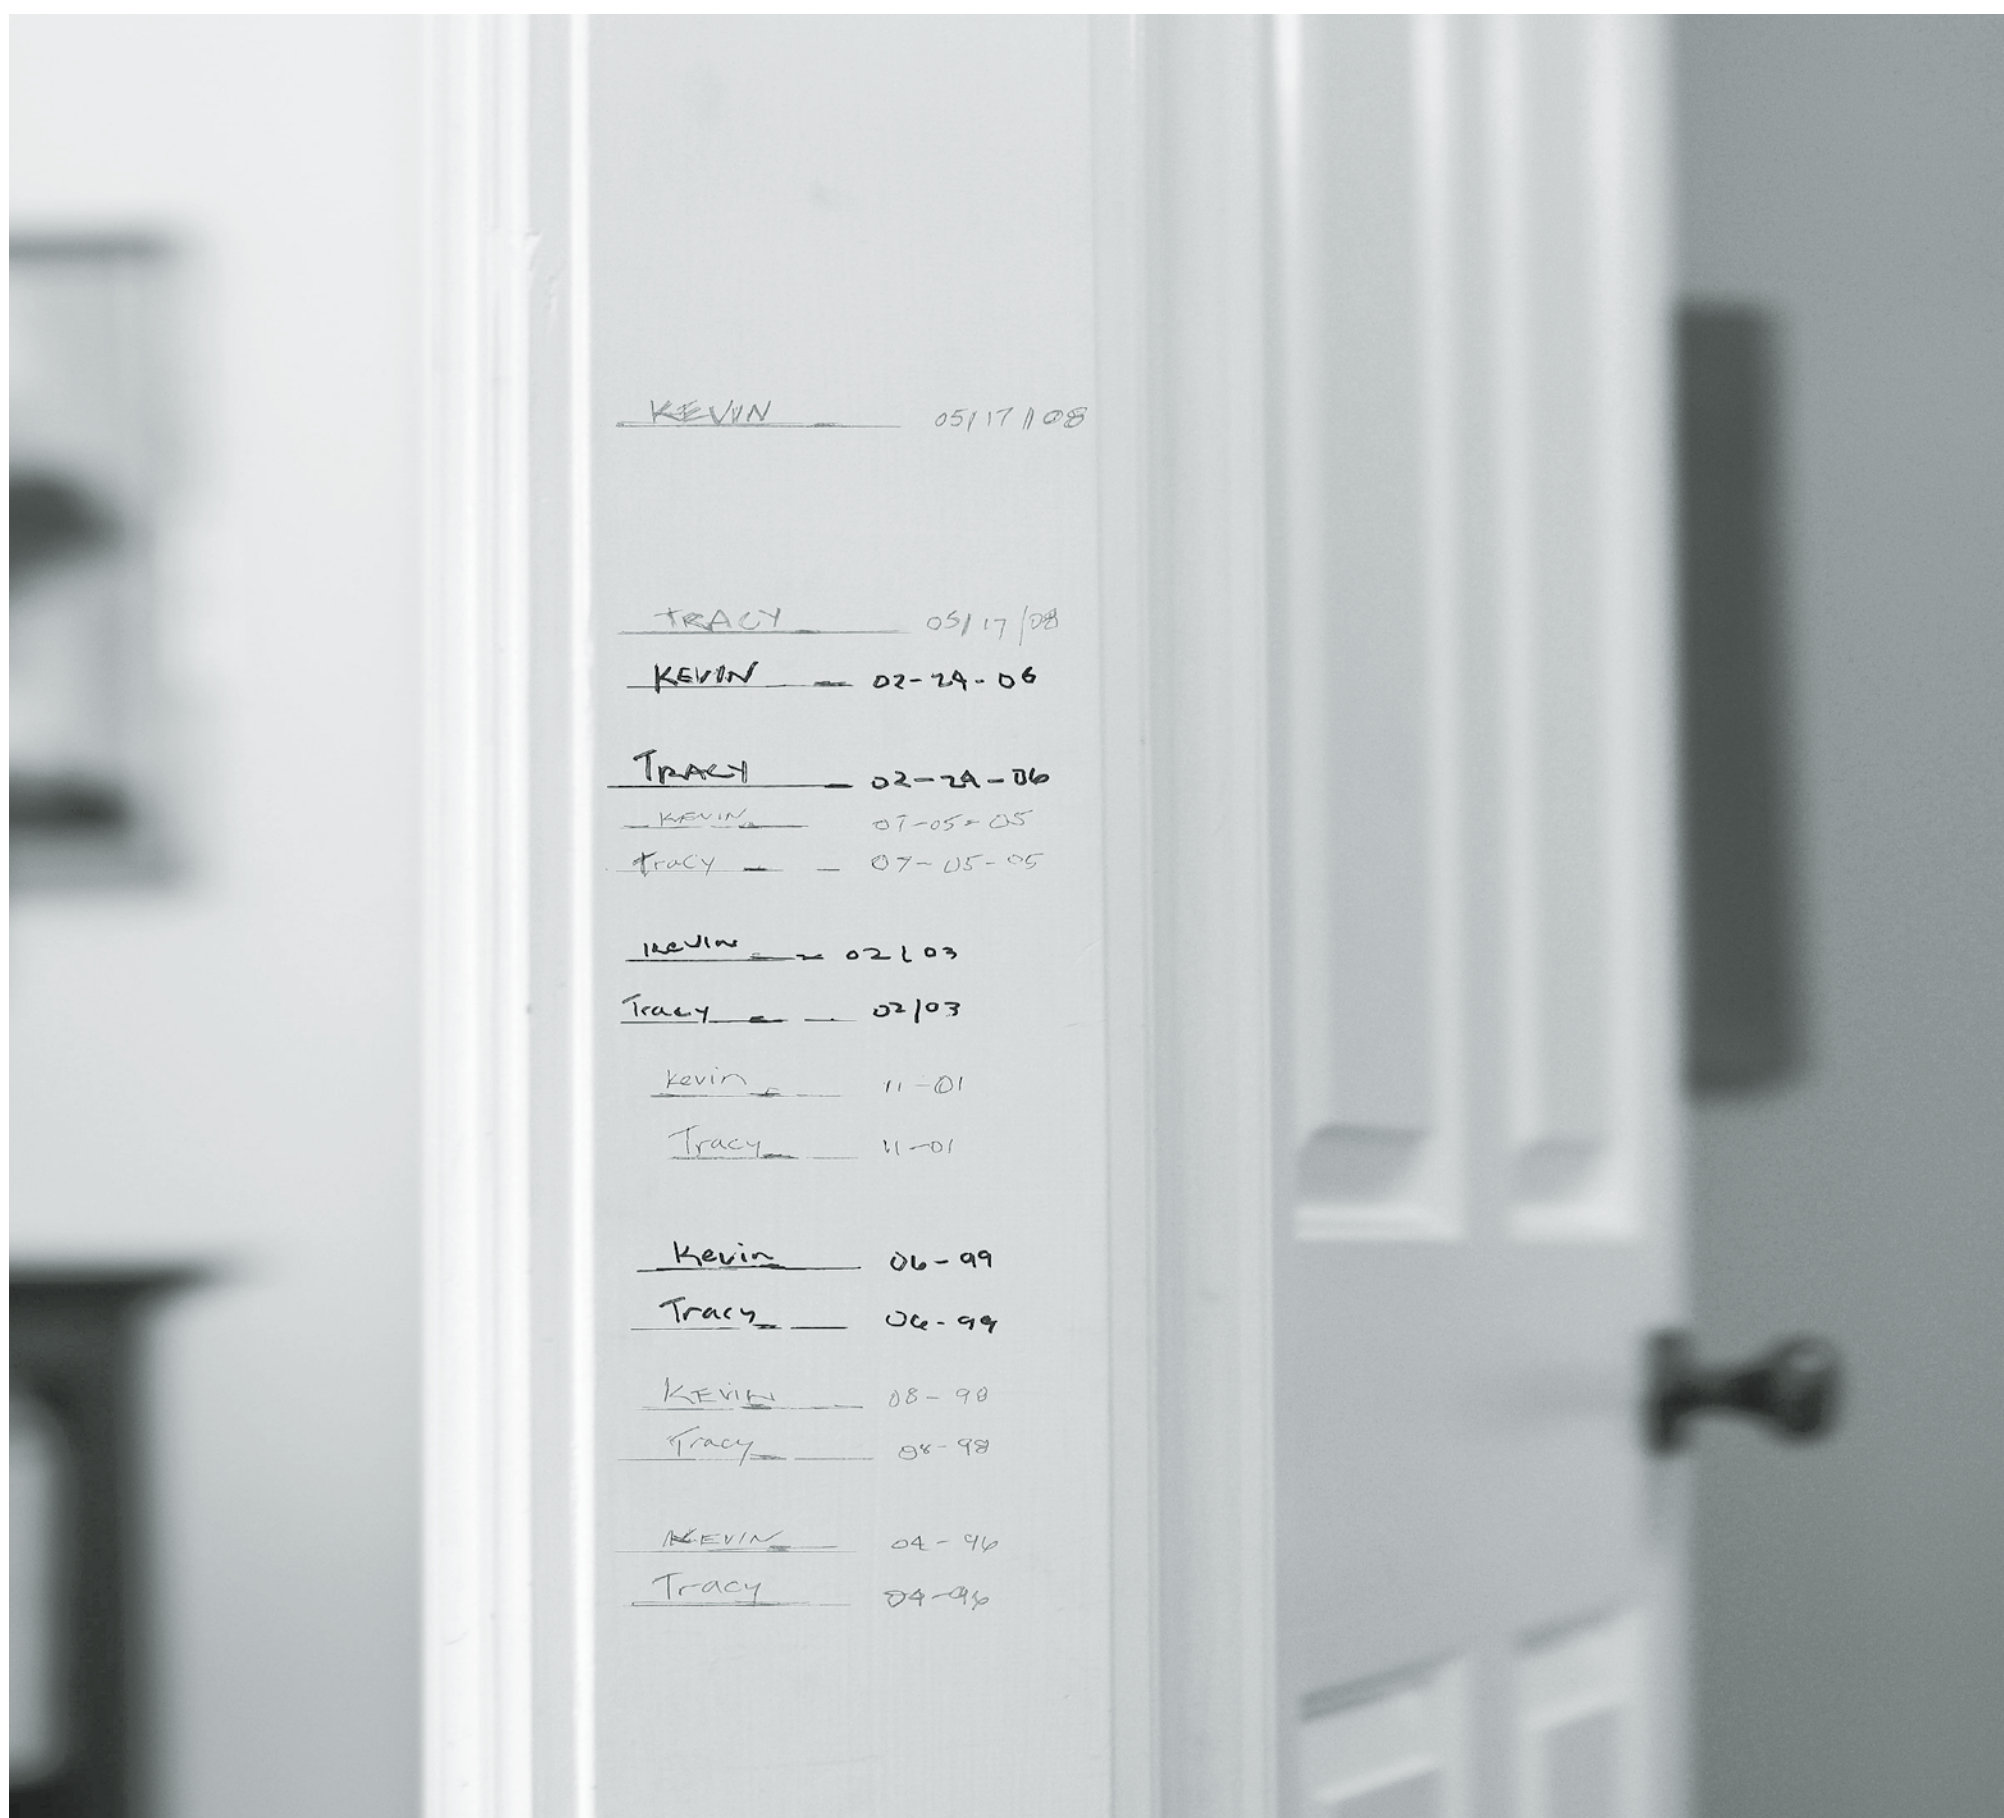 KEVIN 05/17/08
TRACY 05/17/08
KEVIN - 02-24-06
TRACY - 02-24-06
KEVIN 07-05-05
Tracy - 07-05-05
Kevin - 02/03
Tracy - 02/03
Kevin 11-01
Tracy 11-01
Kevin 06-99
Tracy 06-99
KEVIN 08-98
Tracy 08-98
KEVIN 04-96
Tracy 04-96